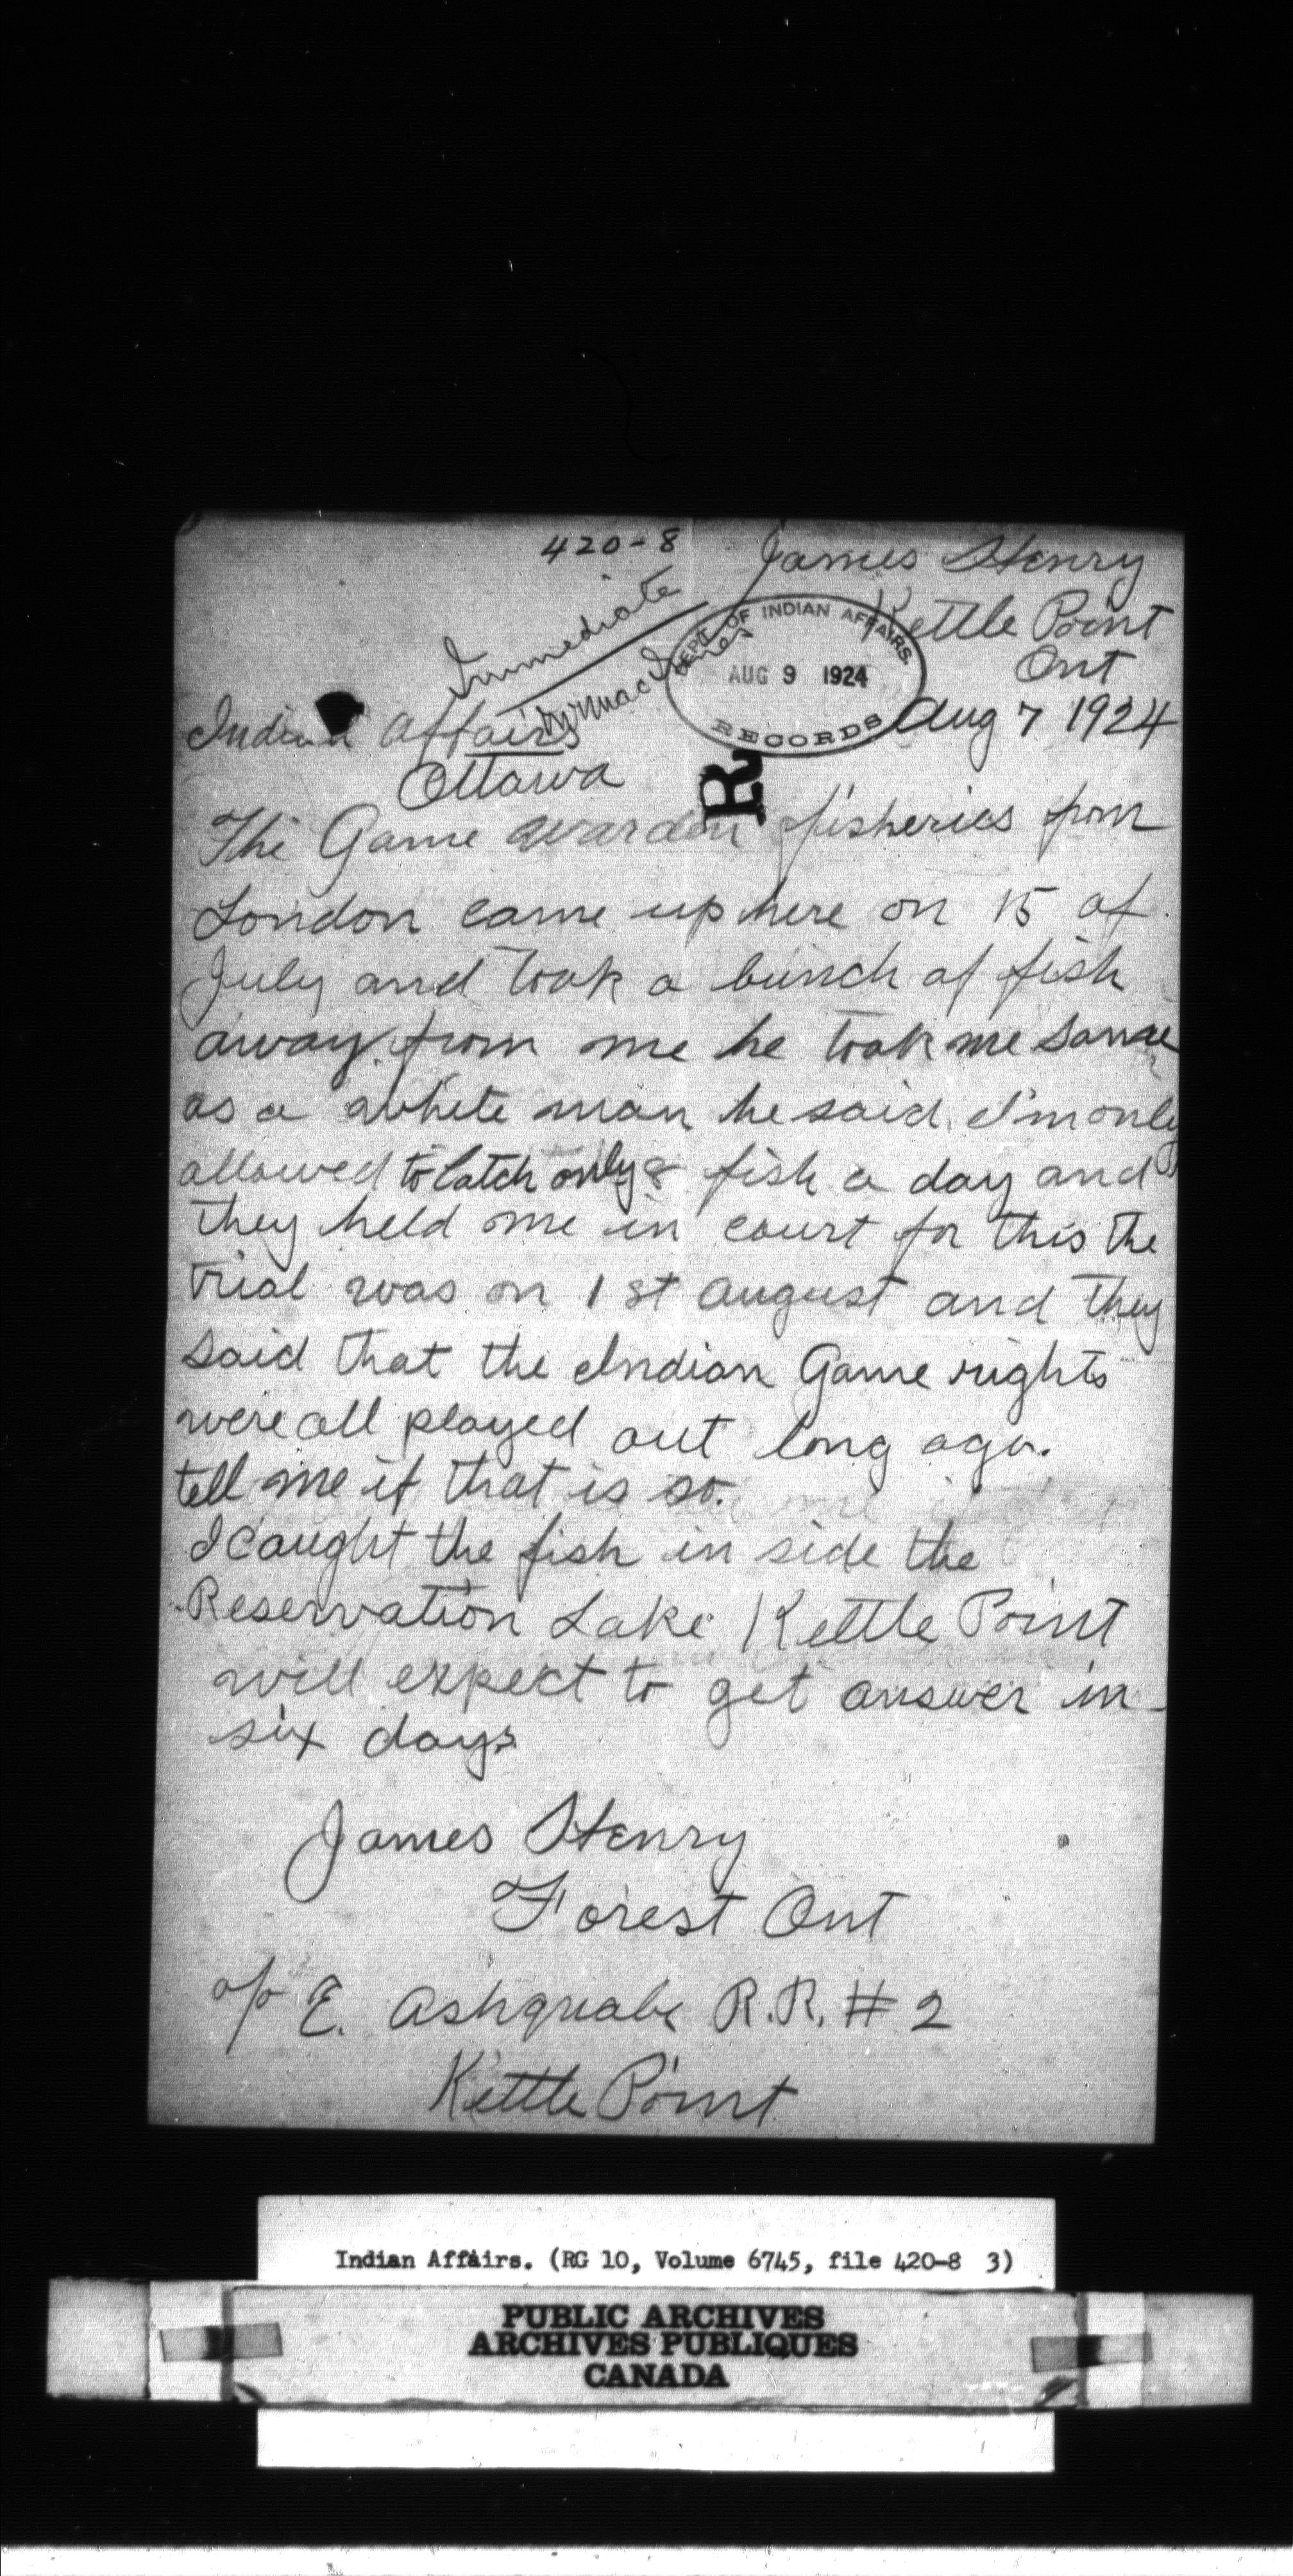 420-8
James Henry
Kettle Point
Ont
Immediate
DEPT. OF INDIAN AFFAIRS.
AUG 9 1924
RECORDS
R
Aug 7 1924
Indian Affairs
Ottawa
The Game Warden fisheries from
London came up here on 15 of
July and took a bunch of fish
away from me he took me same
as a white man he said I'm only
allowed to catch only 8 fish a day and
they held me in court for this the
trial was on 1st August and they
said that the Indian Game rights
were all played out long ago.
tell me if that is so.
I caught the fish in side the
Reservation Lake Kettle Point
will expect to get answer in
six days
James Henry
Forest Ont
c/o E. Ashquabe R.R. # 2
Kettle Point
Indian Affairs. (RG 10, Volume 6745, file 420-8 3)
PUBLIC ARCHIVES
ARCHIVES PUBLIQUES
CANADA